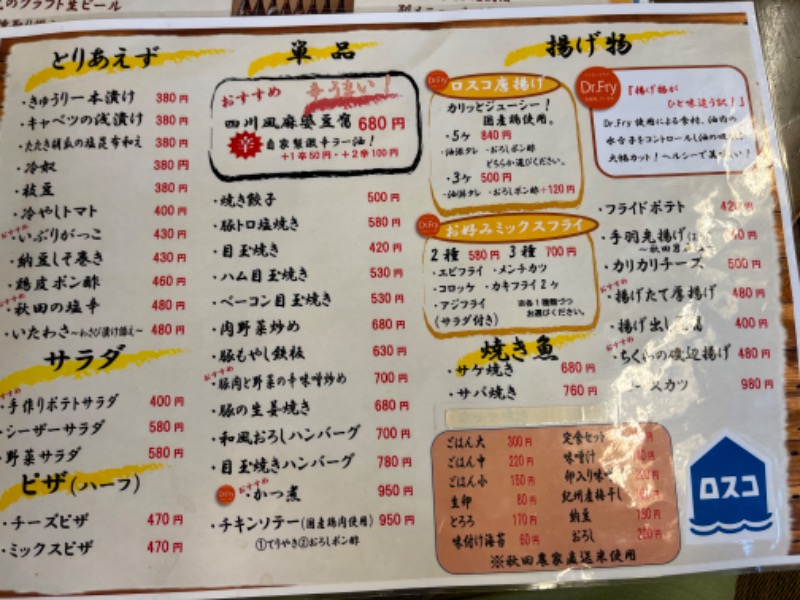 のクラフト生ビール
とりあえず
・きゅうり一本漬け 380円
・キャベツの浅漬け 380円
・たたき胡瓜の塩昆布和え 380円
・冷奴 380円
・枝豆 380円
・冷やしトマト 400円
おすすめ
・いぶりがっこ 430円
・納豆しそ巻き 430円
・鶏皮ポン酢 460円
おすすめ
・秋田の塩辛 480円
・いたわさ〜わさび漬け添え〜 480円
サラダ
おすすめ
・手作りポテトサラダ 400円
・シーザーサラダ 580円
・野菜サラダ 580円
ピザ(ハーフ)
・チーズピザ 470円
・ミックスピザ 470円
単品
おすすめ 辛うまい!
四川風麻婆豆腐 680円
辛 自家製激辛ラー油!
+1辛50円・+2辛100円
・焼き餃子 500円
・豚トロ塩焼き 580円
・目玉焼き 420円
・ハム目玉焼き 530円
・ベーコン目玉焼き 530円
・肉野菜炒め 680円
・豚もやし鉄板 630円
おすすめ
・豚肉と野菜の辛味噌炒め 700円
・豚の生姜焼き 680円
・和風おろしハンバーグ 700円
・目玉焼きハンバーグ 780円
Dr.Fry おすすめ
・かつ煮 950円
・チキンソテー(国産鶏肉使用) 950円
①てりやき②おろしポン酢
揚げ物
Dr.Fry ロスコ唐揚げ
カリッとジューシー!
国産鶏使用。
・5ヶ 840円
・油淋タレ ・おろしポン酢
どちらか選びください。
・3ヶ 500円
・油淋タレ ・おろしポン酢+120円
Dr.Fry お好みミックスフライ
2種 580円 3種 700円
・エビフライ ・メンチカツ
・コロッケ ・カキフライ2ヶ
・アジフライ ※各1種類づつ
(サラダ付き) お選びください。
焼き魚
・サケ焼き 680円
・サバ焼き 760円
Dr.Fry
『揚げ物が
ひと味違う訳!』
Dr.Fry使用による食材、油内の
水分子をコントロールし油の
大幅カット!ヘルシーで美
・フライドポテト
・手羽先揚げ
・カリカリチーズ 500円
おすすめ
・揚げたて厚揚げ 480円
・揚げ出し 400円
おすすめ
・ちくわの磯辺揚げ 480円
スカツ 980円
ごはん大 300円 定食セット
ごはん中 220円 味噌汁
ごはん小 150円 卵入り味噌
生卵 80円 紀州産梅干し
とろろ 170円 納豆
味付け海苔 60円 おろし
※秋田農家直送米使用
ロスコ